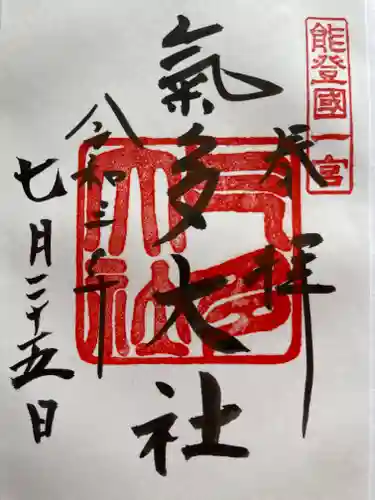 能登國一宮
奉拝
氣多大社
令和三年
七月二十五日
氣多大社